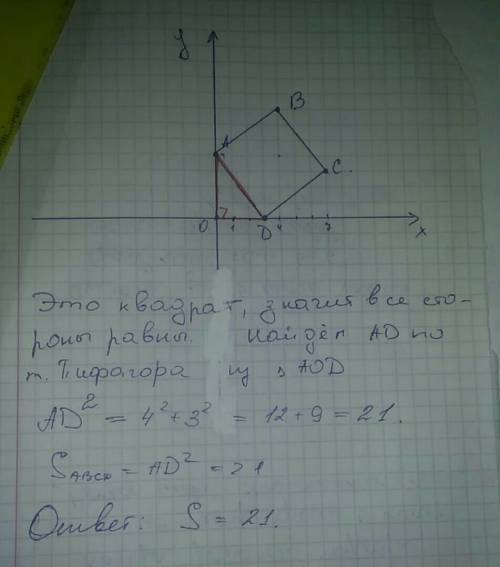 y
B
A
C
O 1 D 4 7 x
Это квадрат, значит все сто-
роны равны. Найдём AD по
т. Пифагора из △ AOD
AD² = 4² + 3² = 12 + 9 = 21.
S ABCD = AD² = 21
Ответ: S = 21.